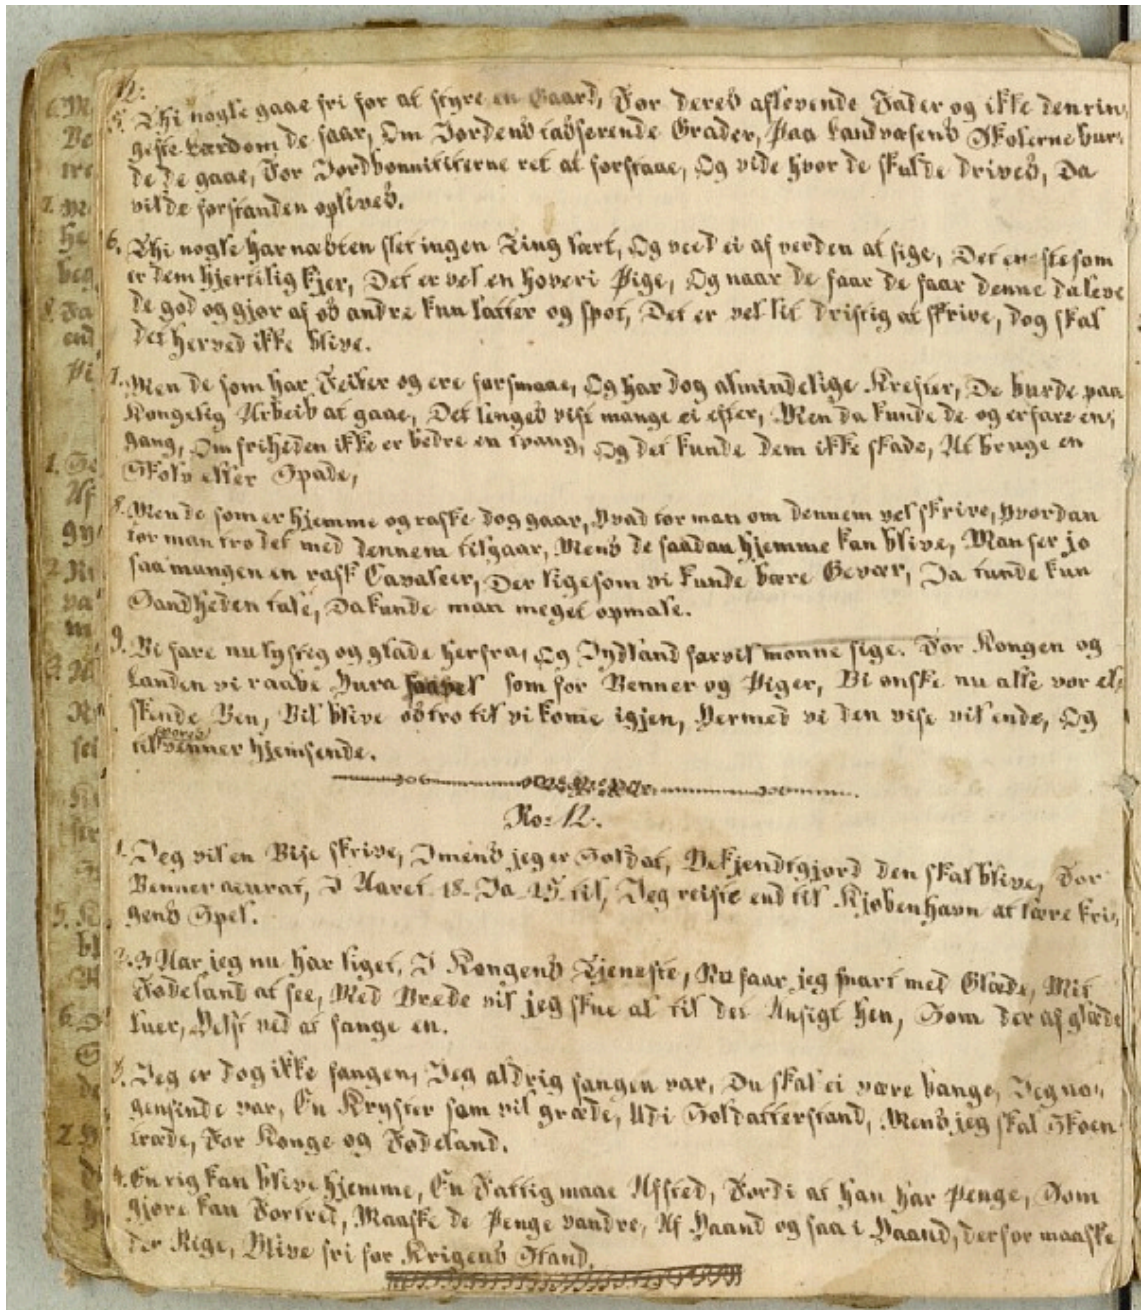 12.
5. Thi nogle gaae fri for at styre en Gaard, For deres aflevende Fader og ikke den rin-
geste Lærdom de faar, Om Jordens Grader, Paa Landvæsens Skolerne bur-
de de gaae, For ret at forstaae, Og vide hvor de skulde drives, Da
vilde forstanden oplives.
6. Thi nogle har næsten slet ingen Ting lært, Og veed ei af verden at sige, Det eneste som
er dem hjertelig kjer, Det er vel en hoveri Pige, Og naar de faar de faar denne da leve
de god og gjør af os andre kun latter og spot, Det er vel lit dristig at skrive, dog skal
det herved ikke blive.
7. Men de som har Feiler og ere forsmaae, Og har dog almindelige Krefter, De burde paa
Kongelig Arbeid at gaae, Det lenges vist mange ei efter, Men da kunde de og erfare en-
gang, Om friheden ikke er bedre en tvang, Og det kunde dem ikke skade, At bruge en
Skolv eller Spade,
8. Men de som er hjemme og raske dog gaar, Hvad tor man om dennem vel skrive, Hvordan
tor man tro det med dennem tilgaar, Mens de saadan hjemme kan blive, Man ser jo
saa mangen en rask Cavaleer, Der ligesom vi kunde bære Gevær, Ja kun
Sandheden tale, Da kunde man meget opmale.
9. Vi fare nu lystig og glade herfra, Og Jydland farvil monne sige. For Kongen og
Landen vi raabe Hura som for Venner og Piger, Vi ønske nu alle vor el-
skende Ven, Vil blive os tro til vi kome igjen, Hermed vi den vise vil ende, Og
til vores venner hjemsende.
No: 12.
1. Jeg vil en Vise skrive, Imens jeg er Soldat, Bekjendtgjord den skal blive, For
Venner acurat, I Aaret 18. Da 25 til, Jeg reiste end til Kjøbenhavn at lære kri-
gens Spel.
2. 3 Aar jeg nu har liget, I Kongens Tjeneste, Nu faar jeg snart med Glæde, Mit
Fødeland at see, Med Vrede vil jeg skue al til det Ansigt hen, Som der af glæde
luer, Helst ved at fange en.
3. Jeg er dog ikke fangen, Jeg aldrig fangen var, Du skal ei være bange, Jeg no-
gensinde var, En Kryster som vil græde, Udi Soldatterstand, Mens jeg skal Skoen
træde, For Konge og Fødeland.
4. En rig kan blive hjemme, En Fattig maae Afsted, Fordi at han har Penge, Som
gjøre kan Fortred, Maaske de Penge vandre, Af Haand og saa i Haand, derfor maaske
der Rige, Blive fri for Krigens Stand.